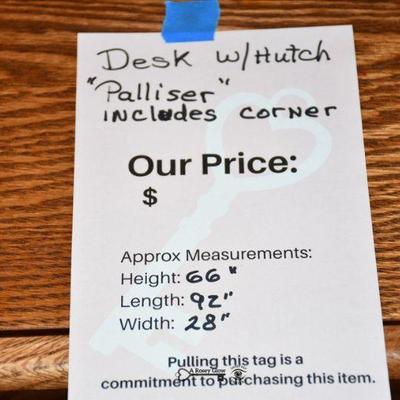 Desk w/Hutch
"Palliser"
includes corner
Our Price:
$
Approx Measurements:
Height: 66"
Length: 92"
Width: 28"
Pulling this tag is a
A Rosey Glow
commitment to purchasing this item.